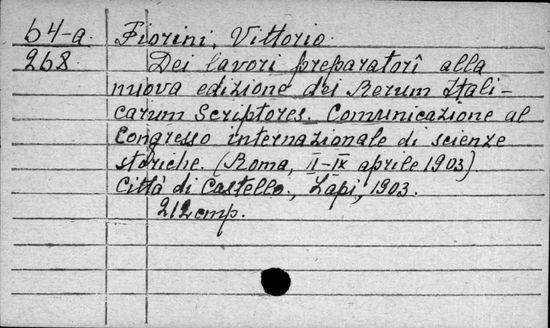 64-a. Fiorini, Vittorio.
268. Dei lavori preparatorî alla
nuova edizione dei Rerum Itali-
carum Scriptores. Comunicazione al
Congresso internazionale di scienze
storiche. (Roma, II-IX aprile 1903)
Città di Castello, Lapi, 1903.
212 стр.